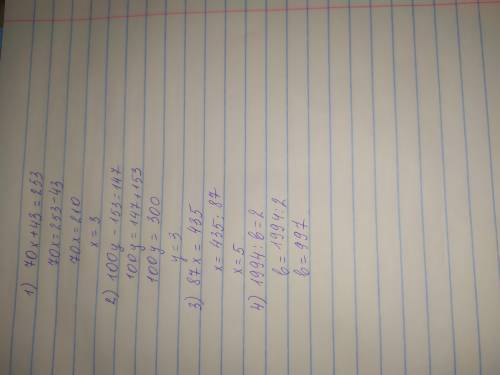 1) 70x + 43 = 253
70x = 253 - 43
70x = 210
x = 3
2) 100y - 153 = 147
100y = 147 + 153
100y = 300
y = 3
3) 87x = 435
x = 435 : 87
x = 5
4) 1994 : b = 2
b = 1994 : 2
b = 997